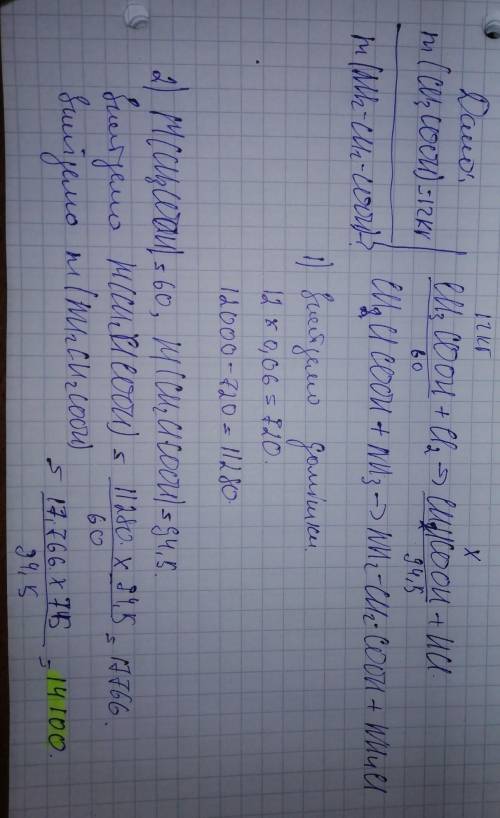 Дано:
m(CH3COOH)=12кг
m(NH2-CH2-COOH)-?
12кг x
CH3COOH + Cl2 => CH2ClCOOH + HCl
60 94,5
CH2ClCOOH + NH3 -> NH2-CH2-COOH + NH4Cl
1) домішки.
12 × 0,06 = 720.
12000 - 720 = 11280.
2) M(CH3COOH) = 60, M(CH2ClCOOH) = 94,5.
M(CH2ClCOOH) = 11280 × 94,5 / 60 = 17766.
m(NH2CH2COOH)
= 17,766 × 75 / 94,5 = 14100.